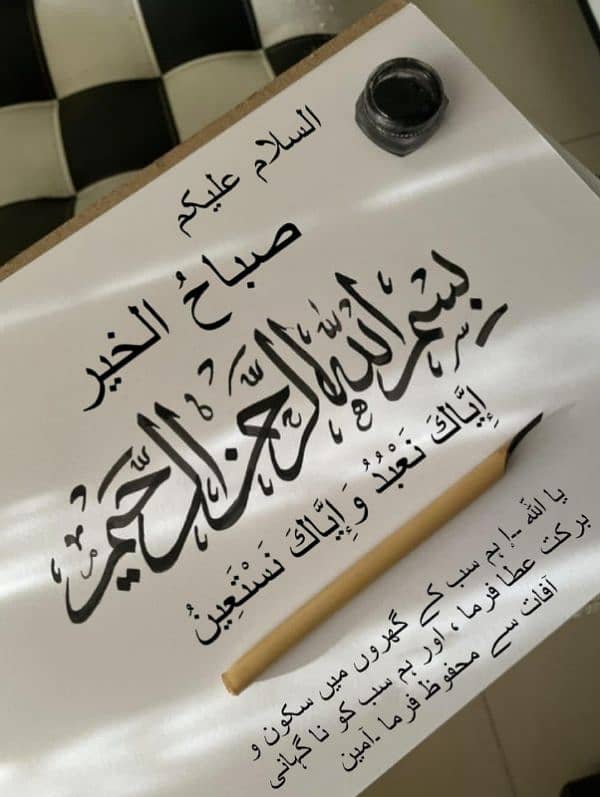 السلام علیکم
صباحُ الخير
بسم الله الرحمن الرحيم
إِيَّاكَ نَعْبُدُ وَإِيَّاكَ نَسْتَعِينُ
یا اللہ -! ہم سب کے گھروں میں سکون و
برکت عطا فرما ، اور ہم سب کو ناگہانی
آفات سے محفوظ فرما -آمین